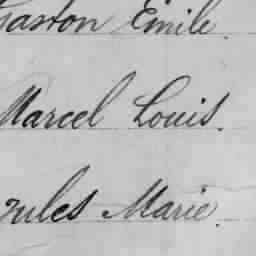 Gaston Emile.
Marcel Louis.
Jules Marie.